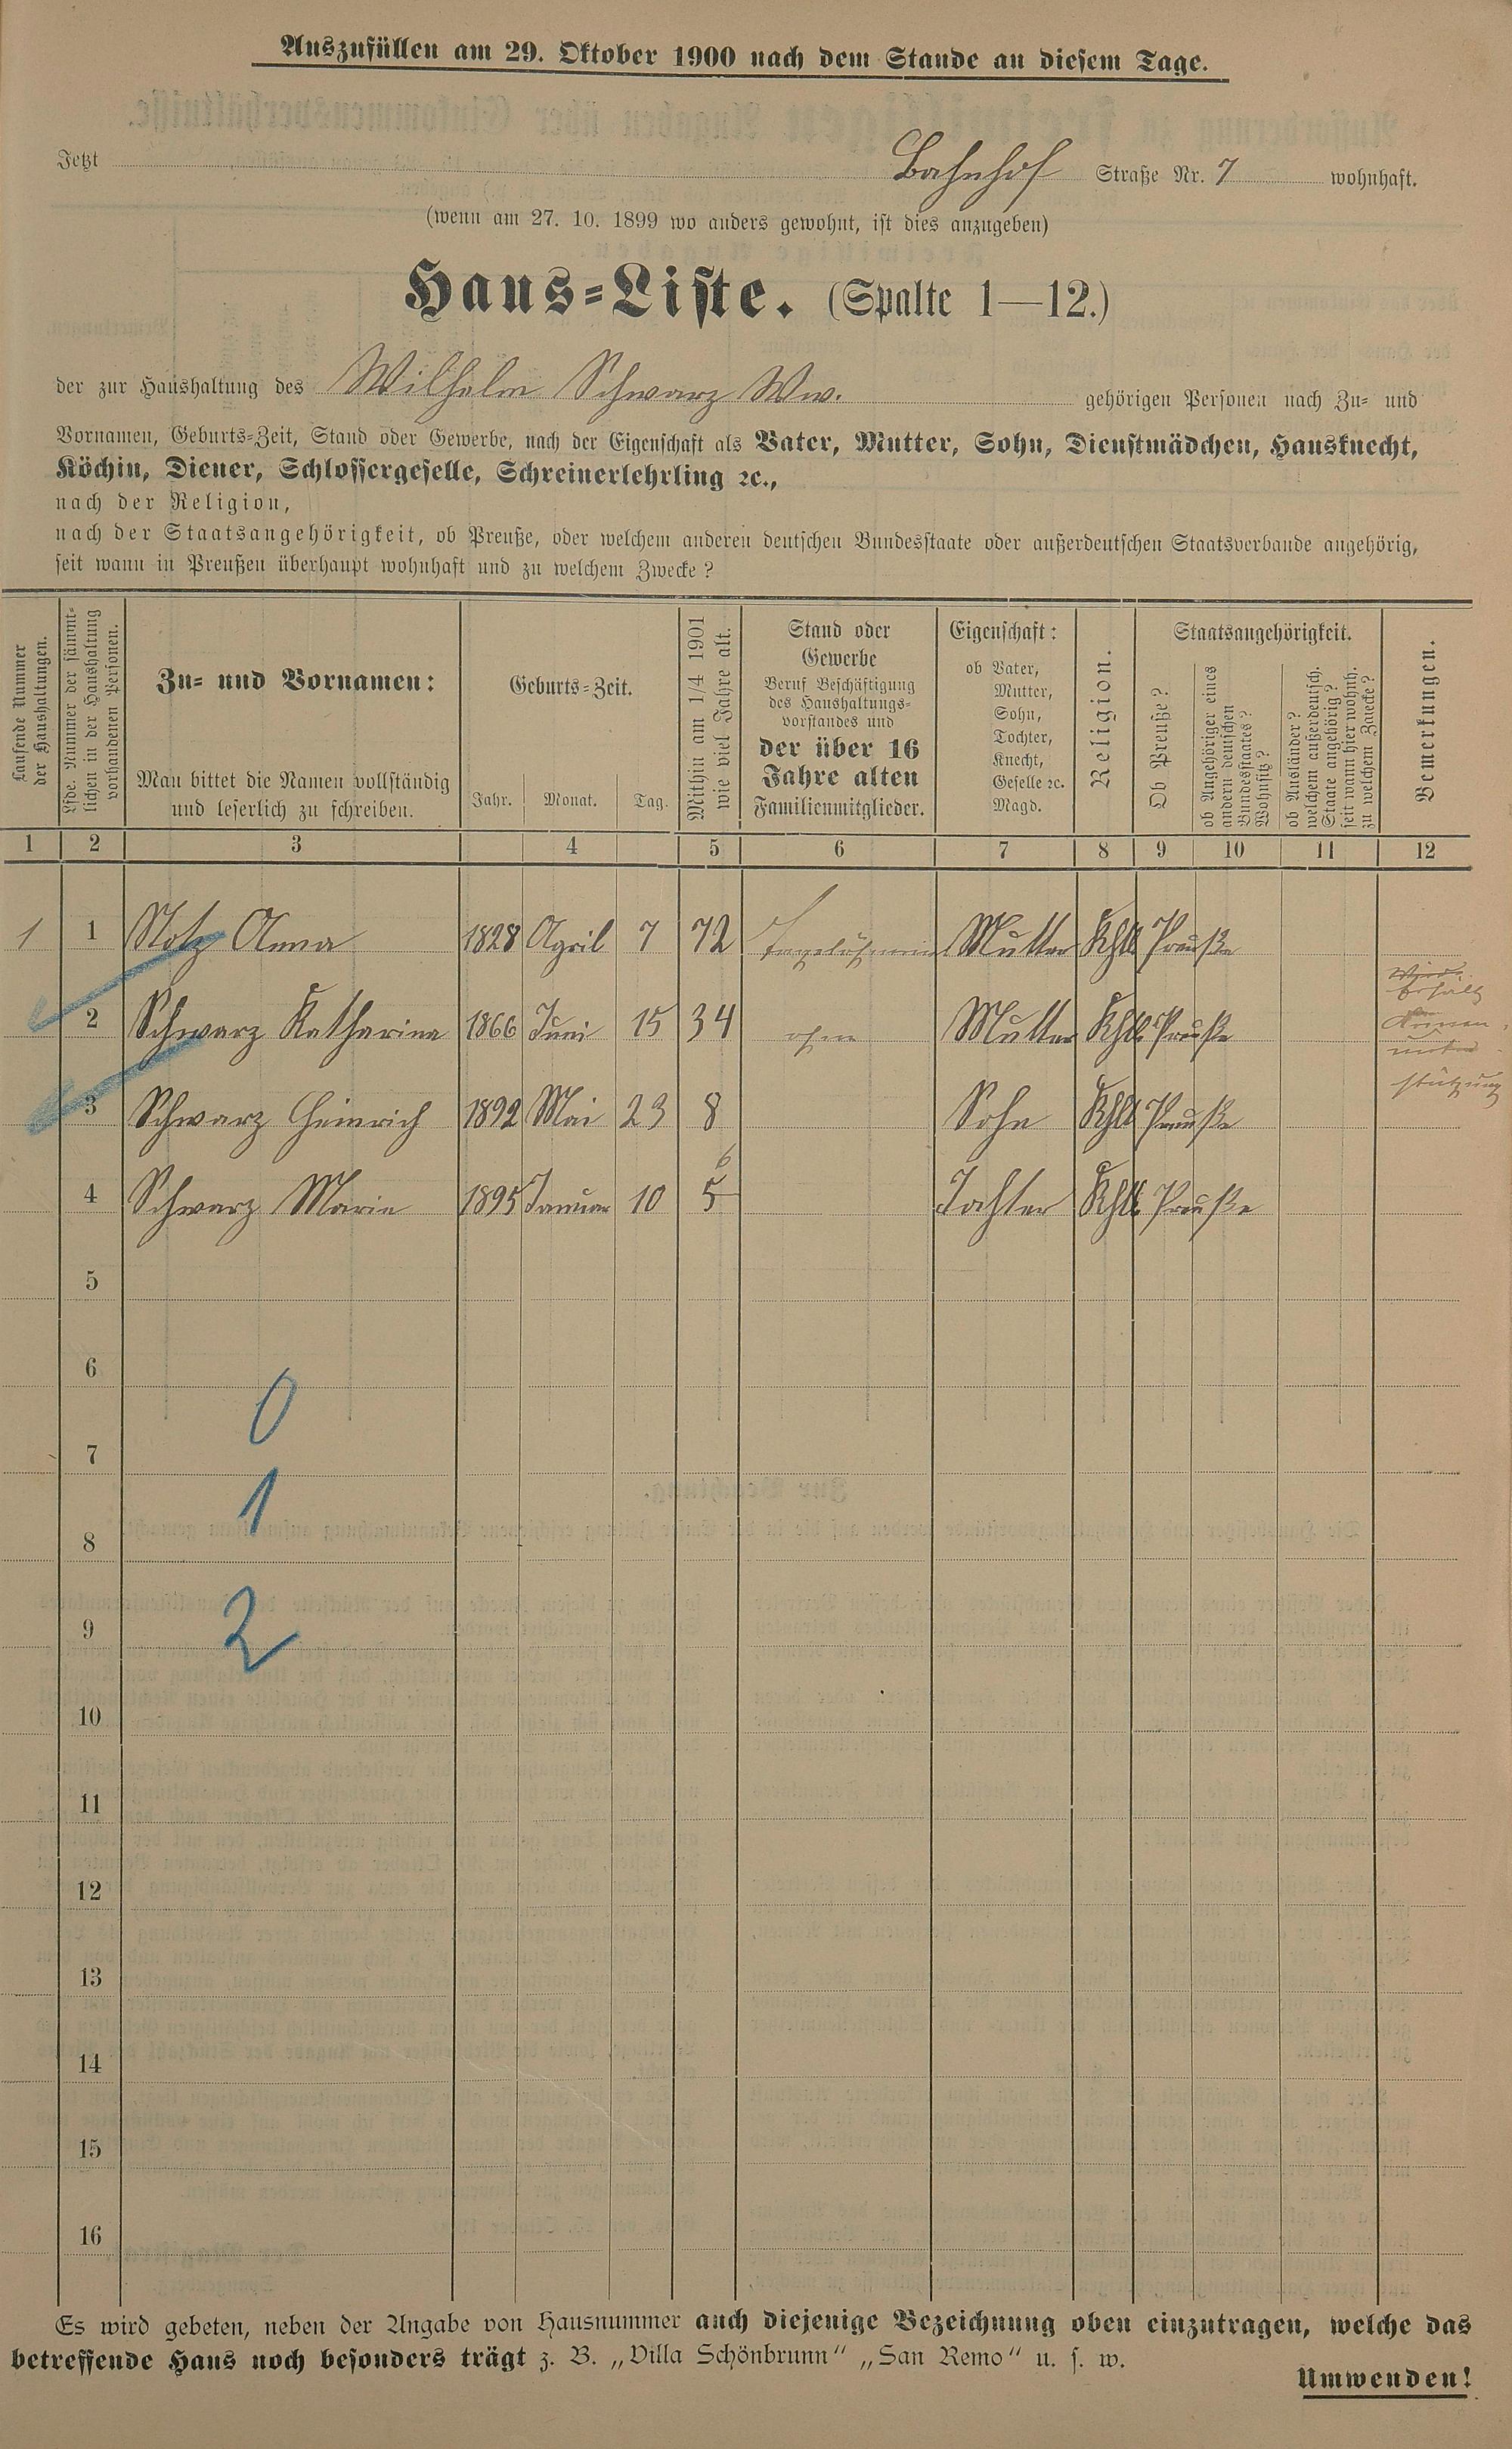 Auszufüllen am 29. Oktober 1900 nach dem Stande an diesem Tage.
Jetzt Bahnhof Straße Nr. 7 wohnhaft.
(wenn am 27. 10. 1899 wo anders gewohnt, ist dies anzugeben)
Haus-Liste. (Spalte 1—12.)
der zur Haushaltung des Wilhelm Schwarz Ww. gehörigen Personen nach Zu- und
Vornamen, Geburts-Zeit, Stand oder Gewerbe, nach der Eigenschaft als Vater, Mutter, Sohn, Dienstmädchen, Hausknecht,
Köchin, Diener, Schlossergeselle, Schreinerlehrling ꝛc.,
nach der Religion,
nach der Staatsangehörigkeit, ob Preuße, oder welchem anderen deutschen Bundesstaate oder außerdeutschen Staatsverbande angehörig,
seit wann in Preußen überhaupt wohnhaft und zu welchem Zwecke?
Laufende Nummer
der Haushaltungen.
Lfde. Nummer der sämmt-
lichen in der Haushaltung
vorhandenen Personen.
Zu- und Vornamen:
Man bittet die Namen vollständig
und leserlich zu schreiben.
Geburts-Zeit.
Jahr. Monat. Tag.
Mithin am 1/4 1901
wie viel Jahre alt.
Stand oder
Gewerbe
Beruf Beschäftigung
des Haushaltungs-
vorstandes und
der über 16
Jahre alten
Familienmitglieder.
Eigenschaft:
ob Vater,
Mutter,
Sohn,
Tochter,
Knecht,
Geselle ꝛc.
Magd.
Religion.
Staatsangehörigkeit.
Ob Preuße?
ob Angehöriger eines
andern deutschen
Bundesstaates?
Wohnsitz?
ob Ausländer?
welchem außerdeutsch.
Staate angehörig?
seit wann hier wohnh.
zu welchem Zwecke?
Bemerkungen.
1 2 3 4 5 6 7 8 9 10 11 12
1 1 Stotz Anna 1828 April 7 72 Tagelöhnerin Mutter Kthl. Preuße
2 Schwarz Katharina 1866 Juni 15 34 ohne Mutter Kthl. Preuße
Erhält
Armen-
unter-
stützung
3 Schwarz Heinrich 1892 Mai 23 8 Sohn Kthl. Preuße
6
4 Schwarz Marie 1895 Januar 10 5 Tochter Kthl. Preuße
5
6
0
7
1
8
9
2
10
11
12
13
14
15
16
Es wird gebeten, neben der Angabe von Hausnummer auch diejenige Bezeichnung oben einzutragen, welche das
betreffende Haus noch besonders trägt z. B. „Villa Schönbrunn“ „San Remo“ u. s. w.
Umwenden!